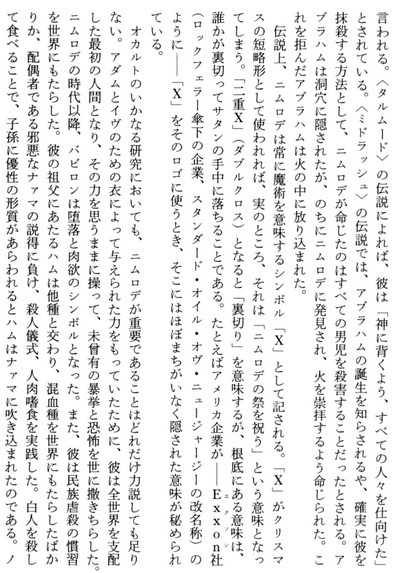 言われる。〈タルムード〉の伝説によれば、彼は「神に背くよう、すべての人々を仕向けた」
とされている。〈ミドラッシュ〉の伝説では、アブラハムの誕生を知らされるや、確実に彼を
抹殺する方法として、ニムロデが命じたのはすべての男児を殺害することだったとされる。ア
ブラハムは洞穴に隠されたが、のちにニムロデに発見され、火を崇拝するよう命じられた。こ
れを拒んだアブラハムは火の中に放り込まれた。
伝説上、ニムロデは常に魔術を意味するシンボル「X」として記される。「X」がクリスマ
スの短略形として使われれば、実のところ、それは「ニムロデの祭を祝う」という意味となっ
てしまう。「二重X」(ダブルクロス)となると「裏切り」を意味するが、根底にある意味は、
誰かが裏切ってサタンの手中に落ちることである。たとえばアメリカ企業が――Exxon社
エクソン
(ロックフェラー傘下の企業、スタンダード・オイル・オヴ・ニュージャージーの改名称)の
ように――「X」をそのロゴに使うとき、そこにはほぼまちがいなく隠された意味が秘められ
ている。
オカルトのいかなる研究においても、ニムロデが重要であることはどれだけ力説しても足り
ない。アダムとイヴのための衣によって与えられた力をもっていたために、彼は全世界を支配
した最初の人間となり、その力を思うままに操って、未曾有の暴挙と恐怖を世に撒きちらした。
ニムロデの時代以降、バビロンは堕落と肉欲のシンボルとなった。また、彼は民族虐殺の慣習
を世界にもたらした。彼の祖父にあたるハムは他種と交わり、混血種を世界にもたらしたばか
りか、配偶者である邪悪なナァマの説得に負け、殺人儀式、人肉嗜食を実践した。白人を殺し
て食べることで、子孫に優性の形質があらわれるとハムはナァマに吹き込まれたのである。ノ